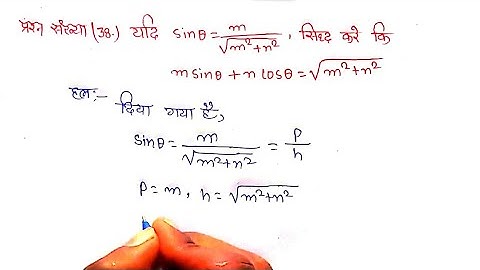 प्रश्न संख्या (38.) यदि sinθ = m/√(m²+n²), सिद्ध करे कि
m sinθ + n cosθ = √(m²+n²)
हल:-
दिया गया है,
sinθ = m/√(m²+n²) = P/h
P = m, h = √(m²+n²)